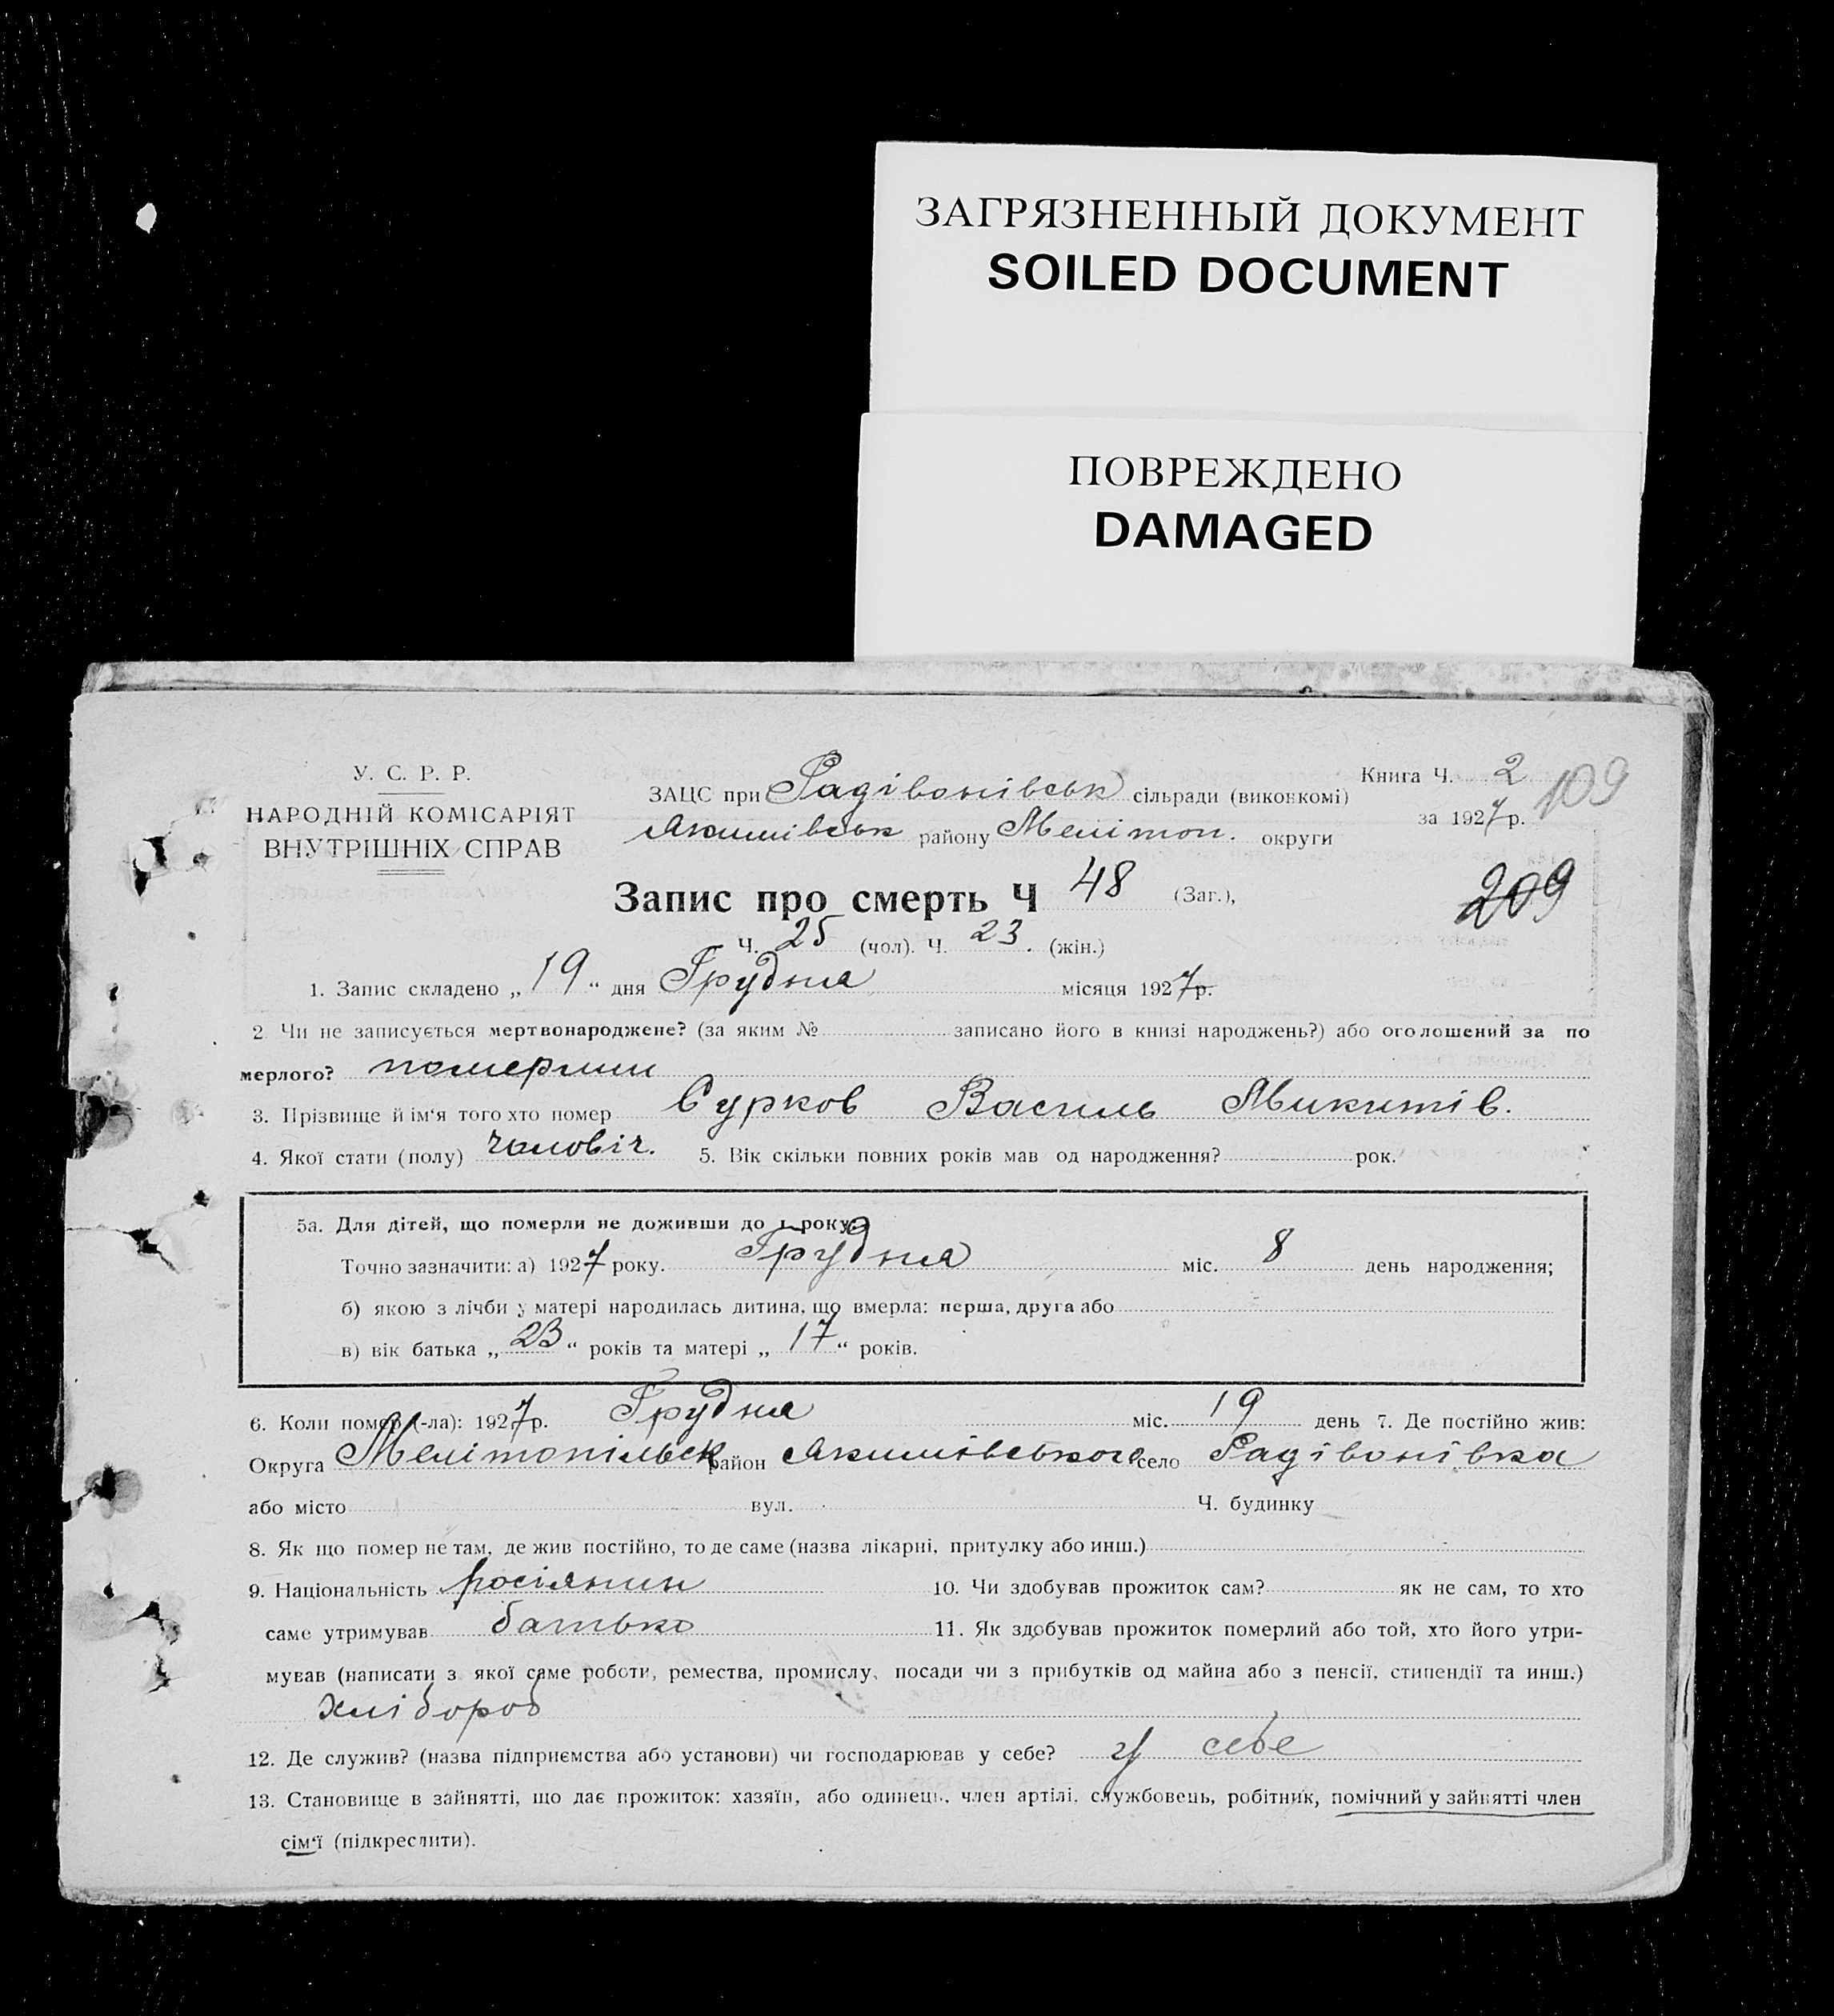 ЗАГРЯЗНЕННЫЙ ДОКУМЕНТ
SOILED DOCUMENT
ПОВРЕЖДЕНО
DAMAGED
У. С. Р. Р.
НАРОДНІЙ КОМІСАРІЯТ
ВНУТРІШНІХ СПРАВ
ЗАЦС при Радівонівськ сільради (виконкомі)
Якимівськ району Мелітоп. округи
Книга Ч. 2
за 1927 р.
109
209
Запис про смерть Ч 48 (Заг.),
Ч. 25 (чол). Ч. 23. (жін.)
1. Запис складено „19“ дня Грудня місяця 1927 р.
2 Чи не записується мертвонароджене? (за яким № записано його в книзі народжень?) або оголошений за по
мерлого? померлий
3. Прізвище й ім‘я того хто помер Сурков Василь Микитів.
4. Якої стати (полу) чоловіч. 5. Вік скільки повних років мав од народження? рок.
5а. Для дітей, що померли не доживши до 1 року:
Точно зазначити: а) 1927 року. Грудня міс. 8 день народження;
б) якою з лічби у матері народилась дитина, що вмерла: перша, друга або
в) вік батька „23“ років та матері „17“ років.
6. Коли помер (-ла): 1927 р. Грудня міс. 19 день 7. Де постійно жив:
Округа Мелітопільськ район Якимівського село Радівонівка
або місто вул. Ч. будинку
8. Як що помер не там, де жив постійно, то де саме (назва лікарні, притулку або инш.)
9. Національність росіянин 10. Чи здобував прожиток сам? як не сам, то хто
саме утримував батько 11. Як здобував прожиток померлий або той, хто його утри-
мував (написати з якої саме роботи, ремества, промислу, посади чи з прибутків од майна або з пенсії, стипендії та инш.)
хлібороб
12. Де служив? (назва підприємства або установи) чи господарював у себе? у себе
13. Становище в зайнятті, що дає прожиток: хазяїн, або одинець, член артілі, службовець, робітник, помічний у зайнятті член
сім‘ї (підкреслити).